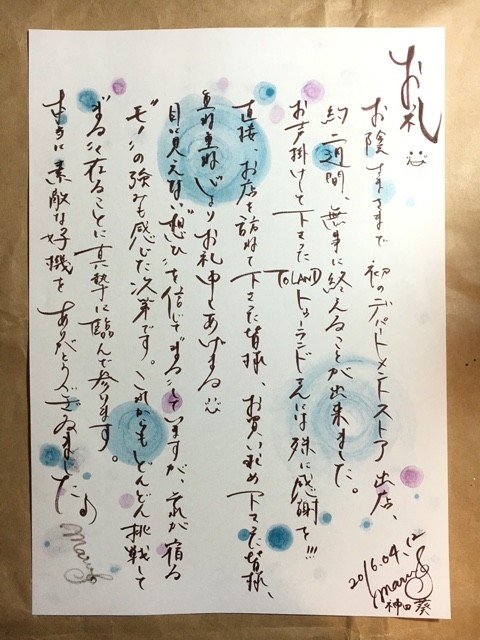 お礼
お陰さまで 初のデパートメントストア出店、
約二週間、無事に終えることが出来ました。
お声掛けして下さった TOLAND トゥーランドさんには殊に感謝を!!!
直接、お店を訪ねて下さった皆様、お買い求め下さった皆様、
重ね重ね お礼申しあげまする
目に見えない"想ひ"を信じて していますが、それが宿る
"モノ"の強みも感じた次第です。これからもどんどん挑戦して
在ることに真摯に臨んで参ります。
まことに素敵な好機を ありがとうござゐました
2016.04.12
神田葵